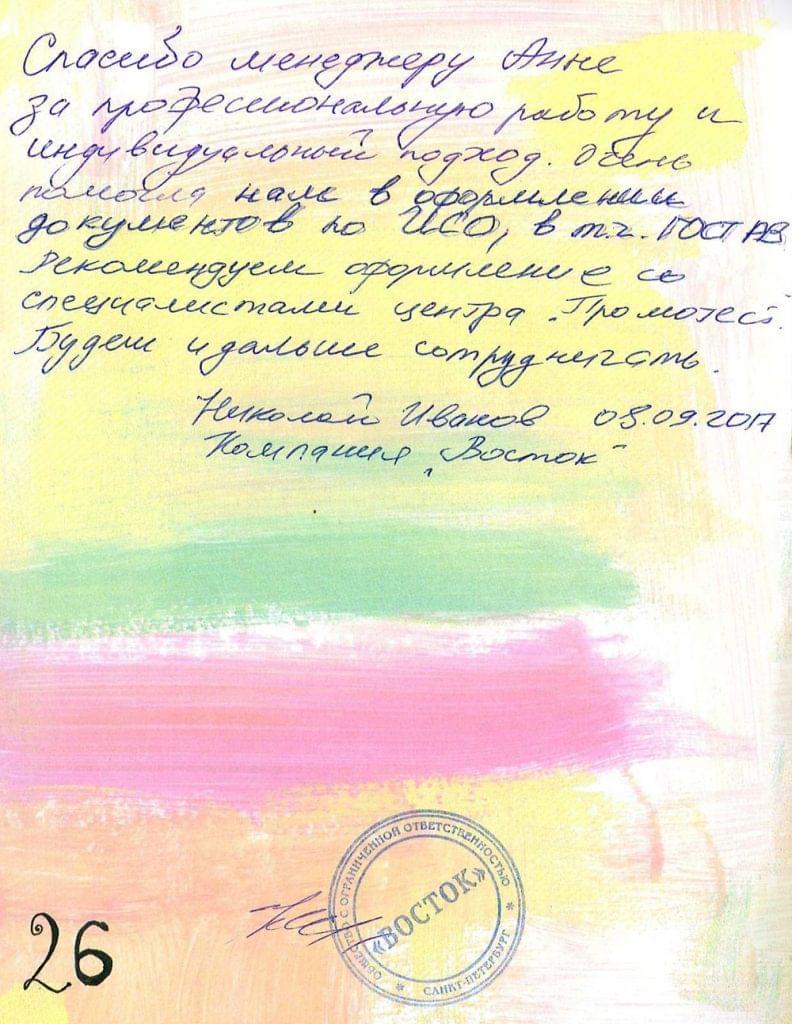 Спасибо менеджеру Анне
за профессиональную работу и
индивидуальный подход. Очень
помогла нам в оформлении
документов по ИСО, в т.ч. ГОСТ РВ
Рекомендуем оформление со
специалистами центра "Промотест".
Будем и дальше сотрудничать.
Николай Иванов 08.09.2017
Компания "Восток"
ОБЩЕСТВО С ОГРАНИЧЕННОЙ ОТВЕТСТВЕННОСТЬЮ
«ВОСТОК»
* САНКТ-ПЕТЕРБУРГ *
26